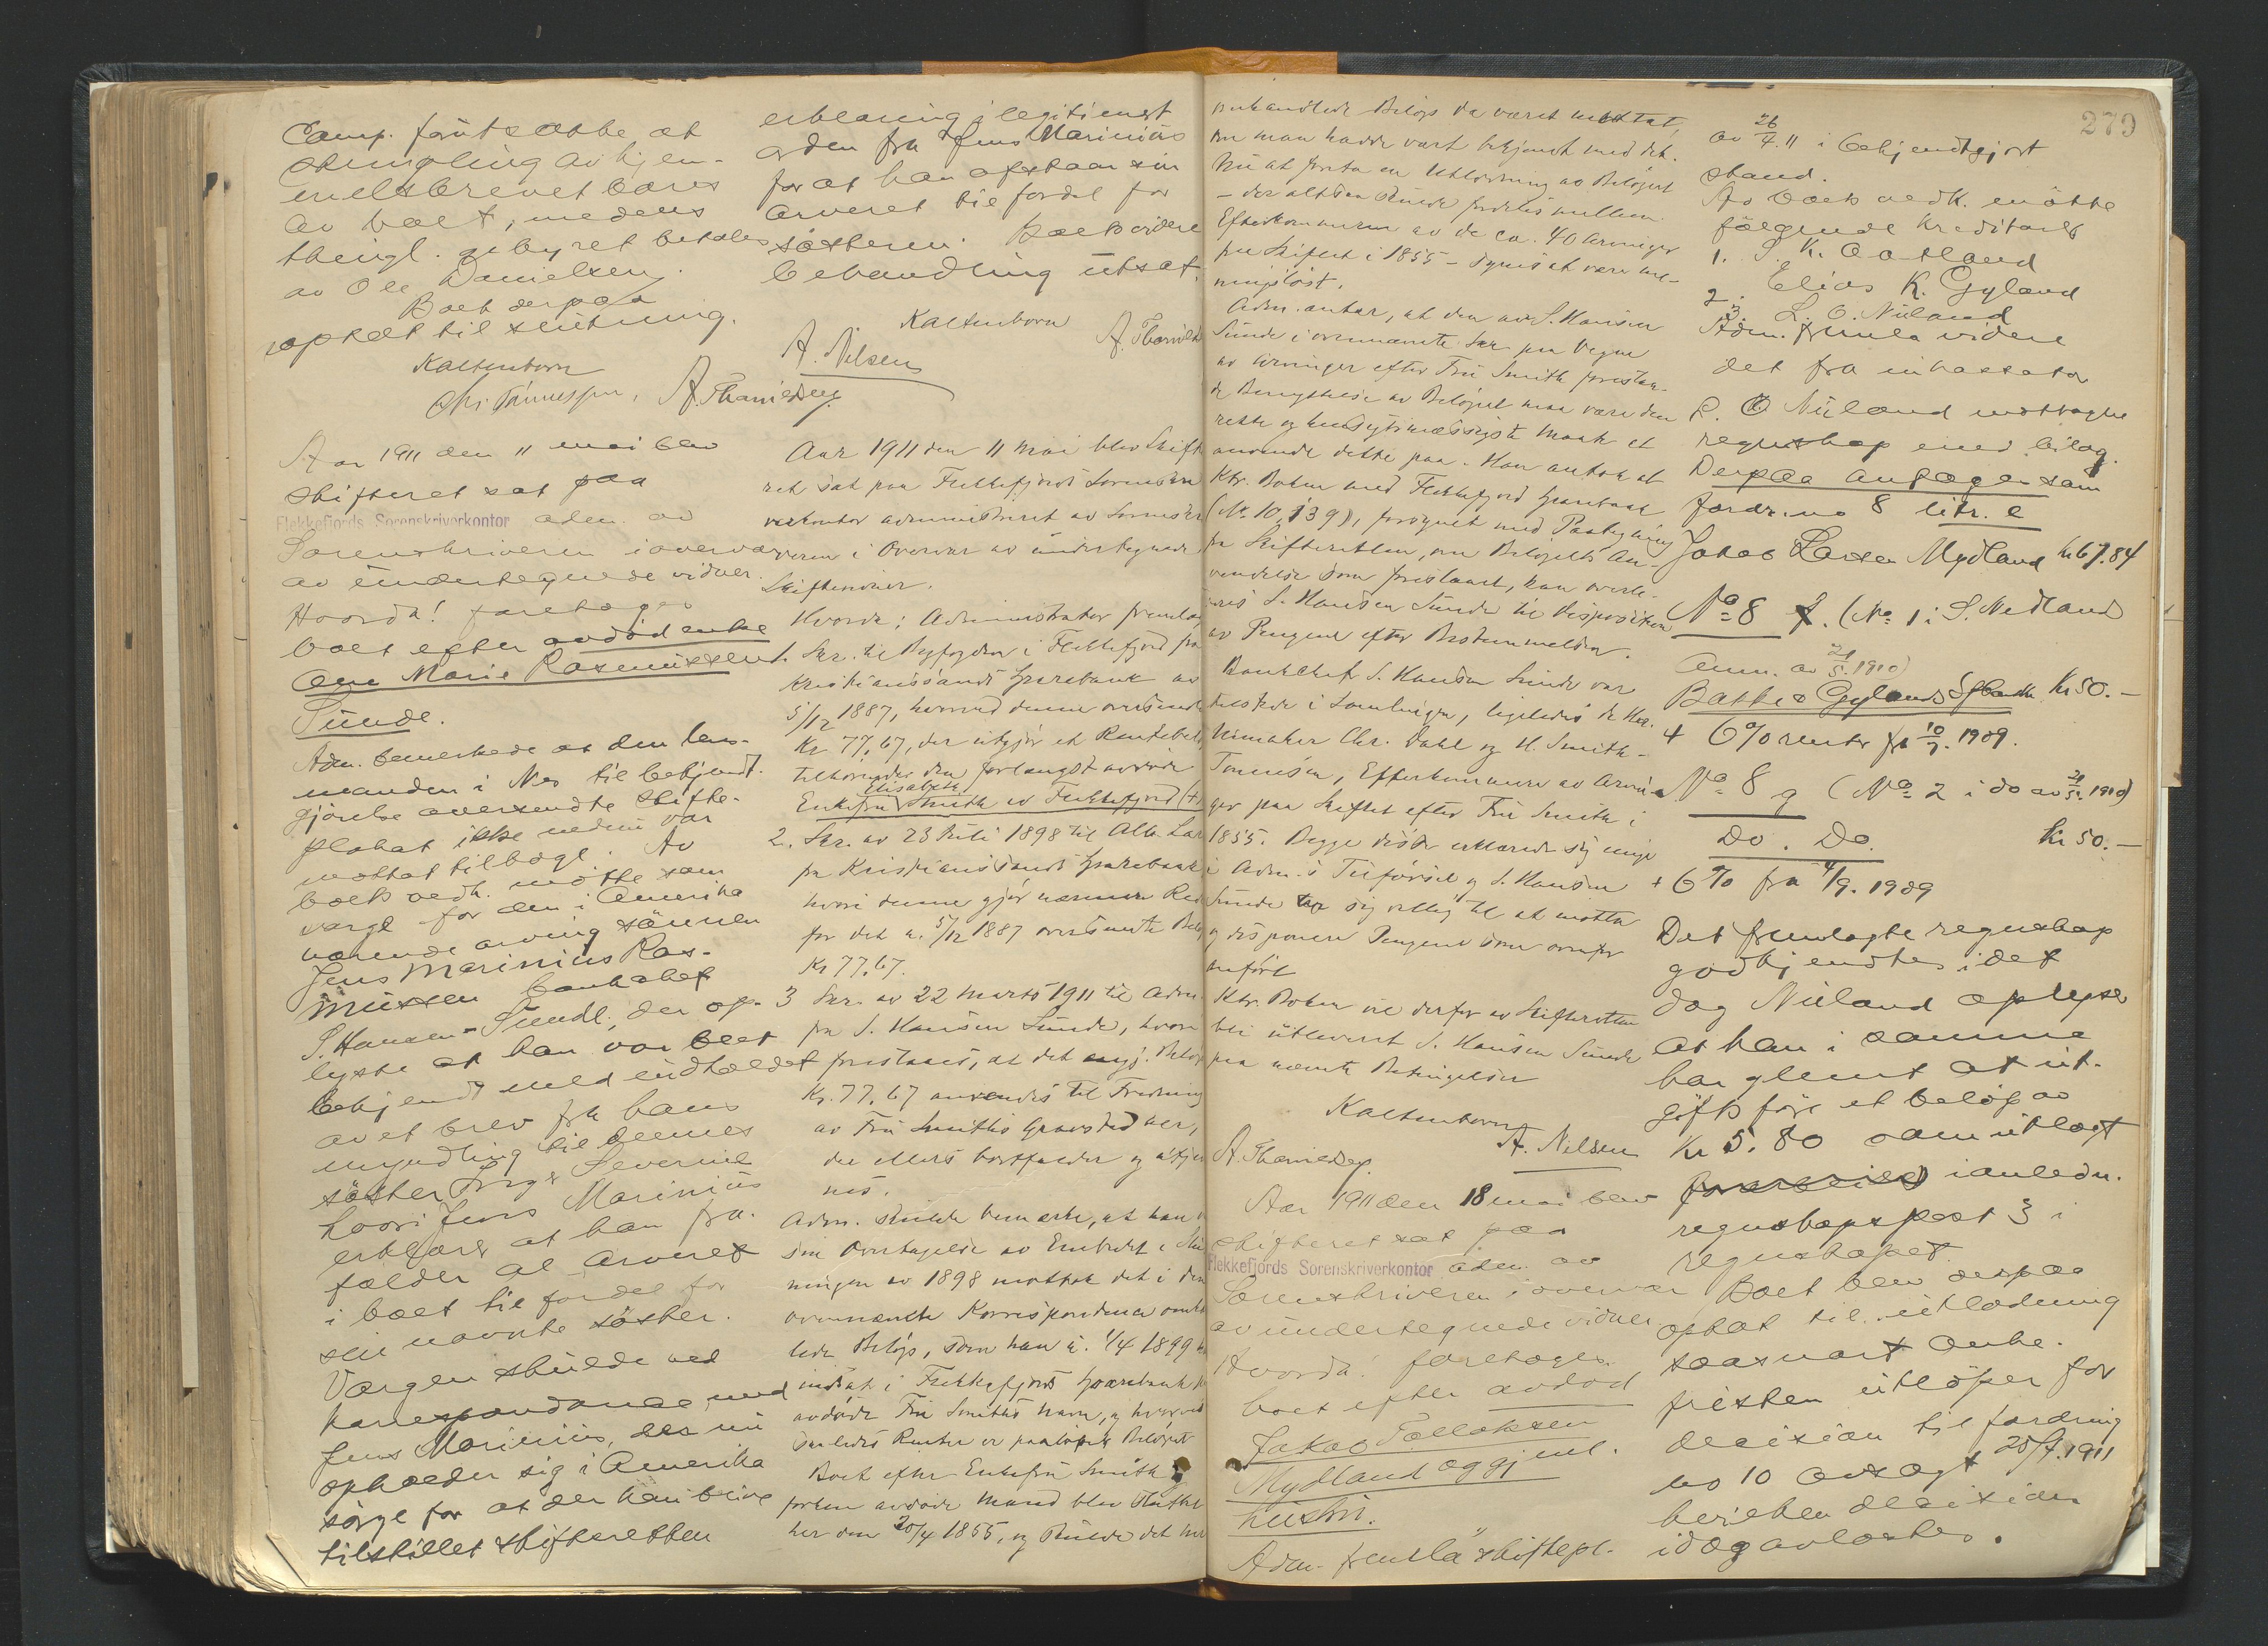 Comp. forutsatte at
stempling av hjem-
melsbrevet bæres
av boet, medens
thingl. gebyret betales
av Ole Danielsen.
Boet derpaa
optat til slutning.
Kaltenborn
Chr. Tønnessen, A. Thamiesen
Aar 1911 den 11 mai blev
skifteret sat paa
Flekkefjords Sorenskriverkontor adm. av
Sorenskriveren i overvær
av undertegnede vidner.
Hvorda! foretages
boet efter avdød enke
Ane Marie Rasmussen
Sunde.
Adm. bemerkede at den lens-
manden i Nes til bekjendt-
gjørelse oversendte skifte-
plakat ikke endnu var
mottat tilbage. Av
boets vedk. møtte som
verge for den i Amerika
værende arving sønnen
Jens Marinius Ras-
mussen bankchef
S. Hansen-Sunde, der op-
lyste at han var blet
bekjendt med indholdet
av et brev fra hans
myndling til dennes
søster Severine
hvori Jens Marinius
erklærer at han fra-
falder al arveret
i boet til fordel for
sin nævnte søster.
Vergen skulde ved
korrespondance med
Jens Marinius, der nu
opholder sig i Amerika
sørge for at der kan blive
tilstillet skifteretten
erklæring i legitimert
orden fra Jens Marinius
for at han afstaar sin
arveret til fordel for
søsteren. Boets videre
behandling utsat.
Kaltenborn
A. Nilsen A. Thamiesen
Aar 1911 den 11 mai blev Skifte-
ret sat paa Flekkefjords Sorenskri-
verkontor administreret av Sorenskri-
veren i Overvær av undertegnede
Skiftevidner.
Hvorda: Administrator fremlagde
1. Skr. til Byfogden i Flekkefjord fra
Kristianssands Sparebank av
5/12 1887, hvorved denne oversendte
Kr 77,67, der utgjør et Rentebeløp
tilhørende den forlængst avdøde
Enkefru Elisabeth Smith av Flekkefjord (+
2. Skr. av 23 Juli 1898 til Alb. Lar
fra Kristianssands Sparebank
hvori denne gjør nærmere Rede
for det u. 5/12 1887 oversendte Beløp
Kr 77,67.
3 Skr. av 22 Marts 1911 til Adm.
fra S. Hansen Sunde, hvori
foreslaaes, at det omgj. Beløp
Kr. 77,67 anvendes til Fredning
av Fru Smiths Gravsted her,
der ellers bortfalder og utskje
nes.
Adm. skulde bemærke, at han ved
sin Overtagelse av Embedet i Slut-
ningen av 1898 mottok det i den
ovennævnte Korrespondance omhand-
lede Beløp, som han u. 1/4 1899
indsat i Flekkefjords Sparebank
avdøde Fru Smiths Navn, og hvorved
saaledes Renter er paaløpet Beløpet
Boet efter Enkefru Smith og
forhen avdøde Mand blev sluttet
her den 20/4 1855, og skulde det her
omhandlede Beløp da været medtat,
om man hadde vært bekjendt med det.
Nu at foreta en Utlodning av Beløpet
- der altsaa skulde fordeles mellem
Efterkommerne av de ca. 40 Arvinger
paa Skiftet i 1855 - synes at være me-
ningsløst.
Adm. antar, at den av S. Hansen
Sunde i ovennævnte Skr. paa Vegne
av Arvinger efter Fru Smith foreslaa-
de Benyttelse av Beløpet maa være den
rette og hensigtsmæssigste Maate at
anvende dette paa. Han antok at
Ktr. Boken med Flekkefjord Sparebank
(No. 10,139), forsynet med Paategning
fra Skifteretten, om Beløpets An-
vendelse som foreslaaet, kan overle-
veres S. Hansen Sunde til Disposition
av Pengene efter Bestemmelsen.
Bankchef S. Hansen Sunde var
tilstede i Samlingen, ligeledes de Hrr.
Urmaker Chr. Dahl og H. Smith-
Tønnesen, Efterkommere av Arvin-
ger paa Skiftet efter Fru Smith i
1855. Begge disse erklærede sig enige
i Adm.s Tilførsel og S. Hansen
Sunde sig villig til at motta
og disponere Pengene som ovenfor
anført
Ktr. Boken vil derfor av Skifteretten
bli utleveret S. Hansen Sunde
paa nævnte Betingelser
Kaltenborn
A. Thamiesen. A. Nilsen
Aar 1911 den 18 mai blev
skifteret sat paa
Flekkefjords Sorenskriverkontor adm. av
Sorenskriveren i overvær
av undertegnede vidner
Hvorda: foretages
boet efter avdød
Jakob Tollaksen
Mydland og gjenl.
hustru.
Adm. fremla skiftepl.
279
av 26/4 11 i bekjendtgjort
stand.
Av boets vedk. møtte
følgende kreditorer
1. S. K. Oatland
2. Elias K. Gyland
3. L. O. Nuland
Adm. fremla videre
det fra inkassator
L. O Nuland mottagne
regnskap med bilag.
Derpaa antages som
fordr. no 8 litr. e
Jakob Larsen Mydland kr 67.84
No 8 f. (No 1 i S. Nedland
anm. av 21/5 1910)
Bakke & Gylands Spbank kr 50.-
+ 6% renter fra 10/7. 1909.
No 8 g (No 2 i do av 21/5. 1910)
Do. Do. kr 50.-
+ 6% fra 4/9. 1909
Det fremlagte regnskap
godkjendtes, idet
dog Nuland oplyser
at han i samme
har glemt at ut-
giftsføre et beløp av
kr 5.80 som utlagt
i anledn.
regnskapspost 3 i
regnskapet.
Boet blev derpaa
optat til utlodning
saasnart anke-
fristen utløper for
decision til fordring
no 10 avsagt 25/4. 1911
hvilken decision
idag avlæstes.